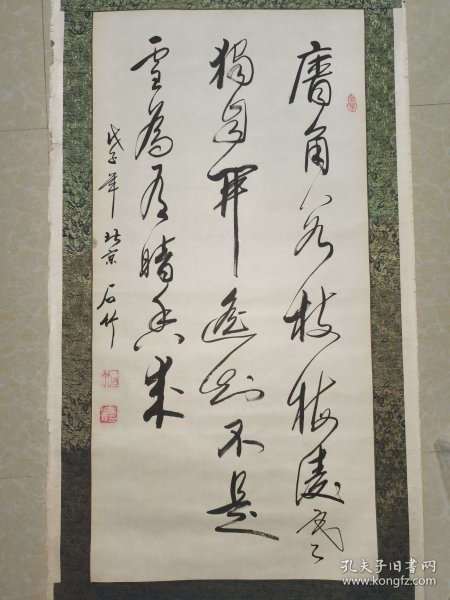 墙角数枝梅凌寒
獨自開遙知不是
雪為有暗香來
戊子年 北京 石竹
孔夫子旧书网
www.kongfz.com